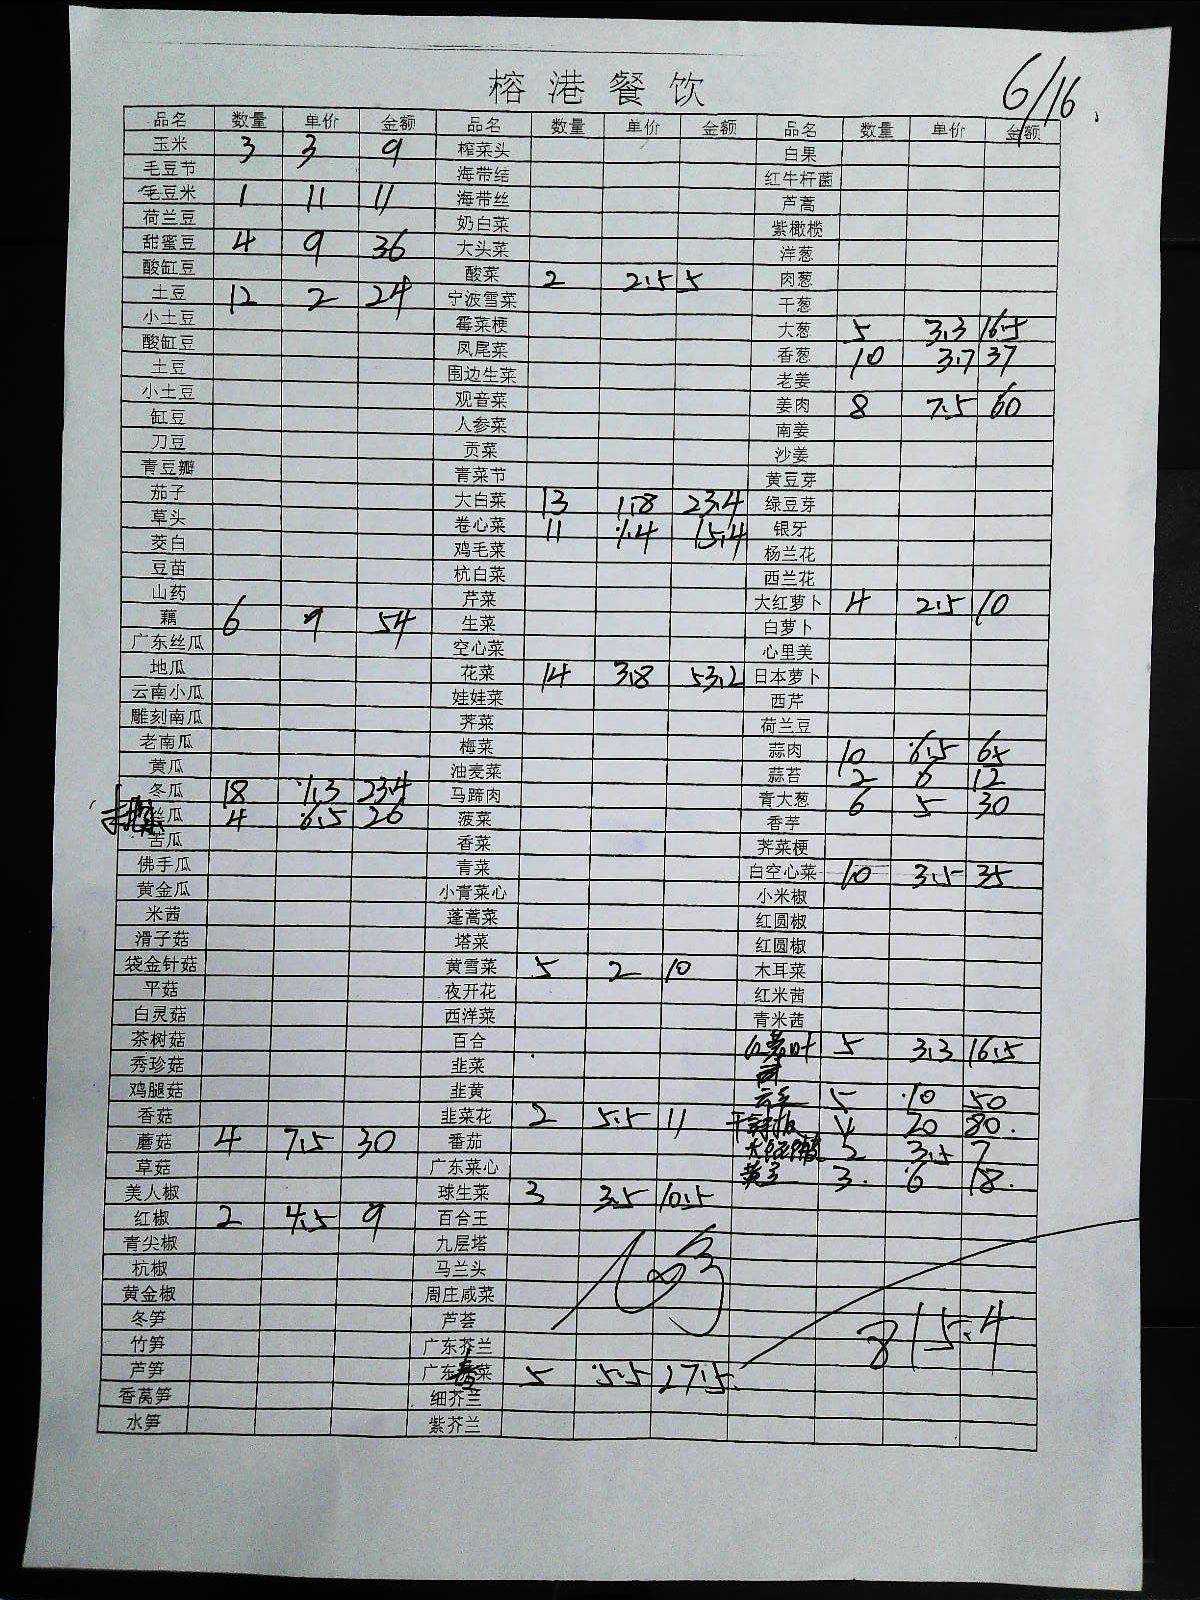 榕港餐饮
6/16.
品名 数量 单价 金额 品名 数量 单价 金额 品名 数量 单价 金额
玉米 3 3 9 榨菜头 白果
毛豆节 海带结 红牛杆菌
毛豆米 1 11 11 海带丝 芦蒿
荷兰豆 奶白菜 紫橄榄
甜蜜豆 4 9 36 大头菜 洋葱
酸缸豆 酸菜 2 2.5 5 肉葱
土豆 12 2 24 宁波雪菜 干葱
小土豆 霉菜梗 大葱 5 3.3 16.5
酸缸豆 凤尾菜 香葱 10 3.7 37
土豆 围边生菜 老姜
小土豆 观音菜 姜肉 8 7.5 60
缸豆 人参菜 南姜
刀豆 贡菜 沙姜
青豆瓣 青菜节 黄豆芽
茄子 大白菜 13 1.8 23.4 绿豆芽
草头 卷心菜 11 1.4 15.4 银牙
茭白 鸡毛菜 杨兰花
豆苗 杭白菜 西兰花
山药 芹菜 大红萝卜 4 2.5 10
藕 6 9 54 生菜 白萝卜
广东丝瓜 空心菜 心里美
地瓜 花菜 14 3.8 53.2 日本萝卜
云南小瓜 娃娃菜 西芹
雕刻南瓜 荠菜 荷兰豆
老南瓜 梅菜 蒜肉 10 6.5 65
黄瓜 油麦菜 蒜苔 2 6 12
冬瓜 18 1.3 23.4 马蹄肉 青大葱 6 5 30
丝瓜 4 6.5 26 菠菜 香芋
苦瓜 香菜 荠菜梗
佛手瓜 青菜 白空心菜 10 3.5 35
黄金瓜 小青菜心 小米椒
米茜 蓬蒿菜 红圆椒
滑子菇 塔菜 红圆椒
袋金针菇 黄雪菜 5 2 10 木耳菜
平菇 夜开花 红米茜
白灵菇 西洋菜 青米茜
茶树菇 百合 5 3.3 16.5
秀珍菇 韭菜
鸡腿菇 韭黄 5 10 50
香菇 韭菜花 2 5.5 11 4 20 80.
蘑菇 4 7.5 30 番茄 2 3.5 7
草菇 广东菜心 3. 6 18.
美人椒 球生菜 3 3.5 10.5
红椒 2 4.5 9 百合王
青尖椒 九层塔
杭椒 马兰头
黄金椒 周庄咸菜
冬笋 芦荟 815.4
竹笋 广东芥兰
芦笋 广东 菜 5 5.5 27.5.
香莴笋 细芥兰
水笋 紫芥兰